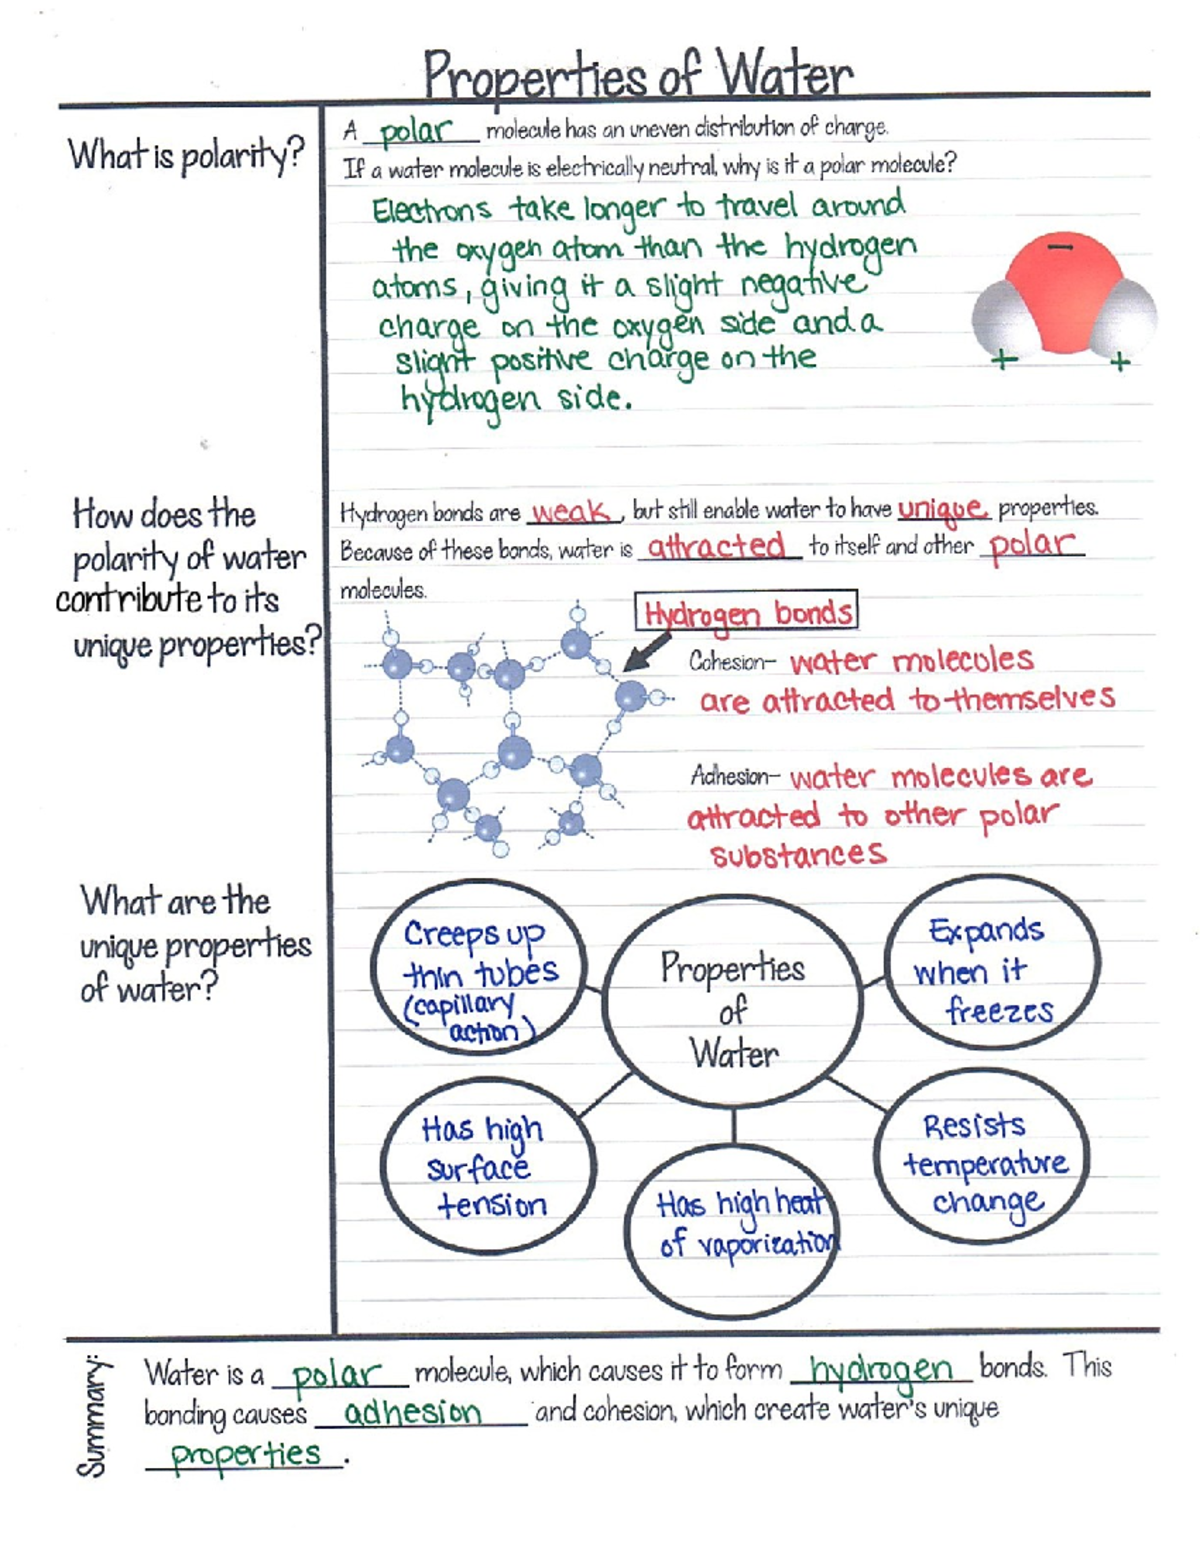 Properties of Water
What is polarity?
A polar molecule has an uneven distribution of charge.
If a water molecule is electrically neutral, why is it a polar molecule?
Electrons take longer to travel around
the oxygen atom than the hydrogen
atoms, giving it a slight negative
charge on the oxygen side and a
slight positive charge on the
hydrogen side.
−
+ +
How does the
polarity of water
contribute to its
unique properties?
Hydrogen bonds are weak, but still enable water to have unique properties.
Because of these bonds, water is attracted to itself and other polar
molecules.
Hydrogen bonds
Cohesion- water molecules
are attracted to themselves
Adhesion- water molecules are
attracted to other polar
substances
What are the
unique properties
of water?
Creeps up
thin tubes
(capillary
action)
Properties
of
Water
Expands
when it
freezes
Has high
surface
tension
Has high heat
of vaporization
Resists
temperature
change
Summary:
Water is a polar molecule, which causes it to form hydrogen bonds. This
bonding causes adhesion and cohesion, which create water's unique
properties.